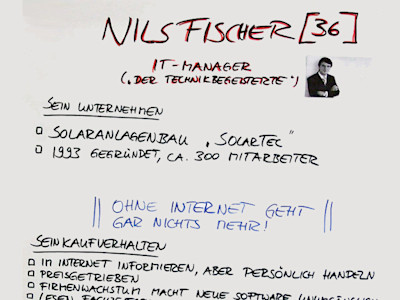 NILS FISCHER [36]
IT-MANAGER
(„DER TECHNIKBEGEISTERTE“)
SEIN UNTERNEHMEN
SOLARANLAGENBAU „SOLARTEC“
1993 GEGRÜNDET, CA. 300 MITARBEITER
|| OHNE INTERNET GEHT ||
GAR NICHTS MEHR!
SEIN KAUFVERHALTEN
IM INTERNET INFORMIEREN, ABER PERSÖNLICH HANDELN
PREISGETRIEBEN
FIRMENWACHSTUM MACHT NEUE SOFTWARE
LESEN